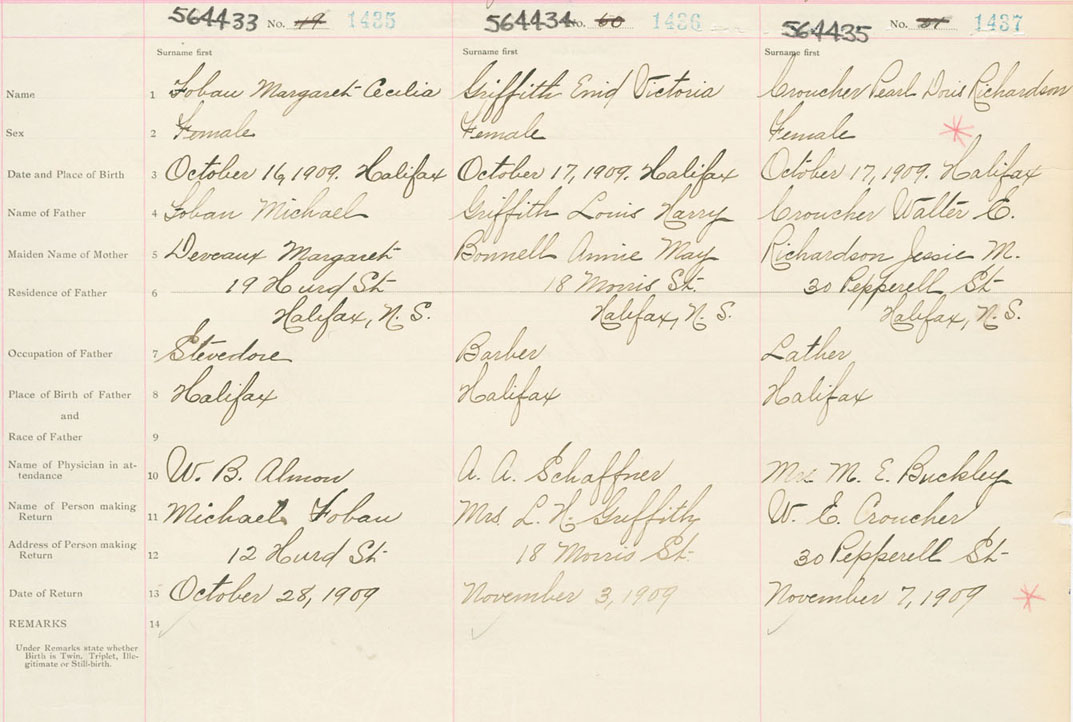 564433 No. 49 1435 564434 No. 50 1436 564435 No. 51 1437
Surname first Surname first Surname first
Name 1 Foban Margaret Cecilia Griffith Enid Victoria Croucher Pearl Doris Richardson
Sex 2 Female Female Female
Date and Place of Birth 3 October 16, 1909. Halifax October 17, 1909. Halifax October 17, 1909. Halifax
Name of Father 4 Foban Michael Griffith Louis Harry Croucher Walter E.
Maiden Name of Mother 5 Deveaux Margaret Bonnell Annie May Richardson Jessie M.
Residence of Father 6 19 Hurd St 18 Morris St. 30 Pepperell St
Halifax, N. S. Halifax, N. S. Halifax, N. S.
Occupation of Father 7 Stevedore Barber Lather
Place of Birth of Father 8 Halifax Halifax Halifax
and
Race of Father 9
Name of Physician in at-
tendance 10 W. B. Almon A. A. Schaffner M. E. Buckley
Name of Person making
Return 11 Michael Foban Mrs. L. H. Griffith W. E. Croucher
Address of Person making
Return 12 12 Hurd St 18 Morris St. 30 Pepperell St
Date of Return 13 October 28, 1909 November 3, 1909 November 7, 1909
REMARKS 14
Under Remarks state whether
Birth is Twin, Triplet, Ille-
gitimate or Still-birth.